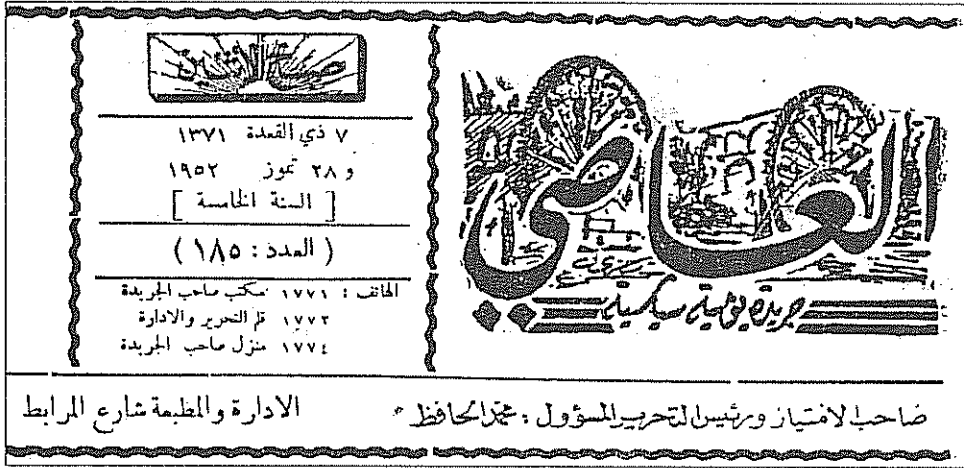 العاصي
جريدة يومية سياسية
صباح الاثنين
٧ ذي القعدة ١٣٧١
و ٢٨ تموز ١٩٥٢
[ السنة الخامسة ]
( العدد : ١٨٥ )
الهاتف : ١٧٧١ مكتب صاحب الجريدة
١٧٧٢ قلم التحرير والادارة
١٧٧٤ منزل صاحب الجريدة
صاحب الامتياز ورئيس التحرير المسؤول : محمد الحافظ
الادارة والمطبعة شارع المرابط